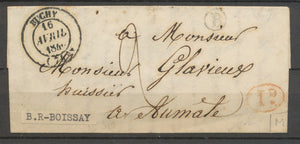 BUCHY
16
AVRIL
184
(74)
B
à Monsieur
Monsieur Glavieux
huissier
à Aumale
1D
B.R-BOISSAY
M